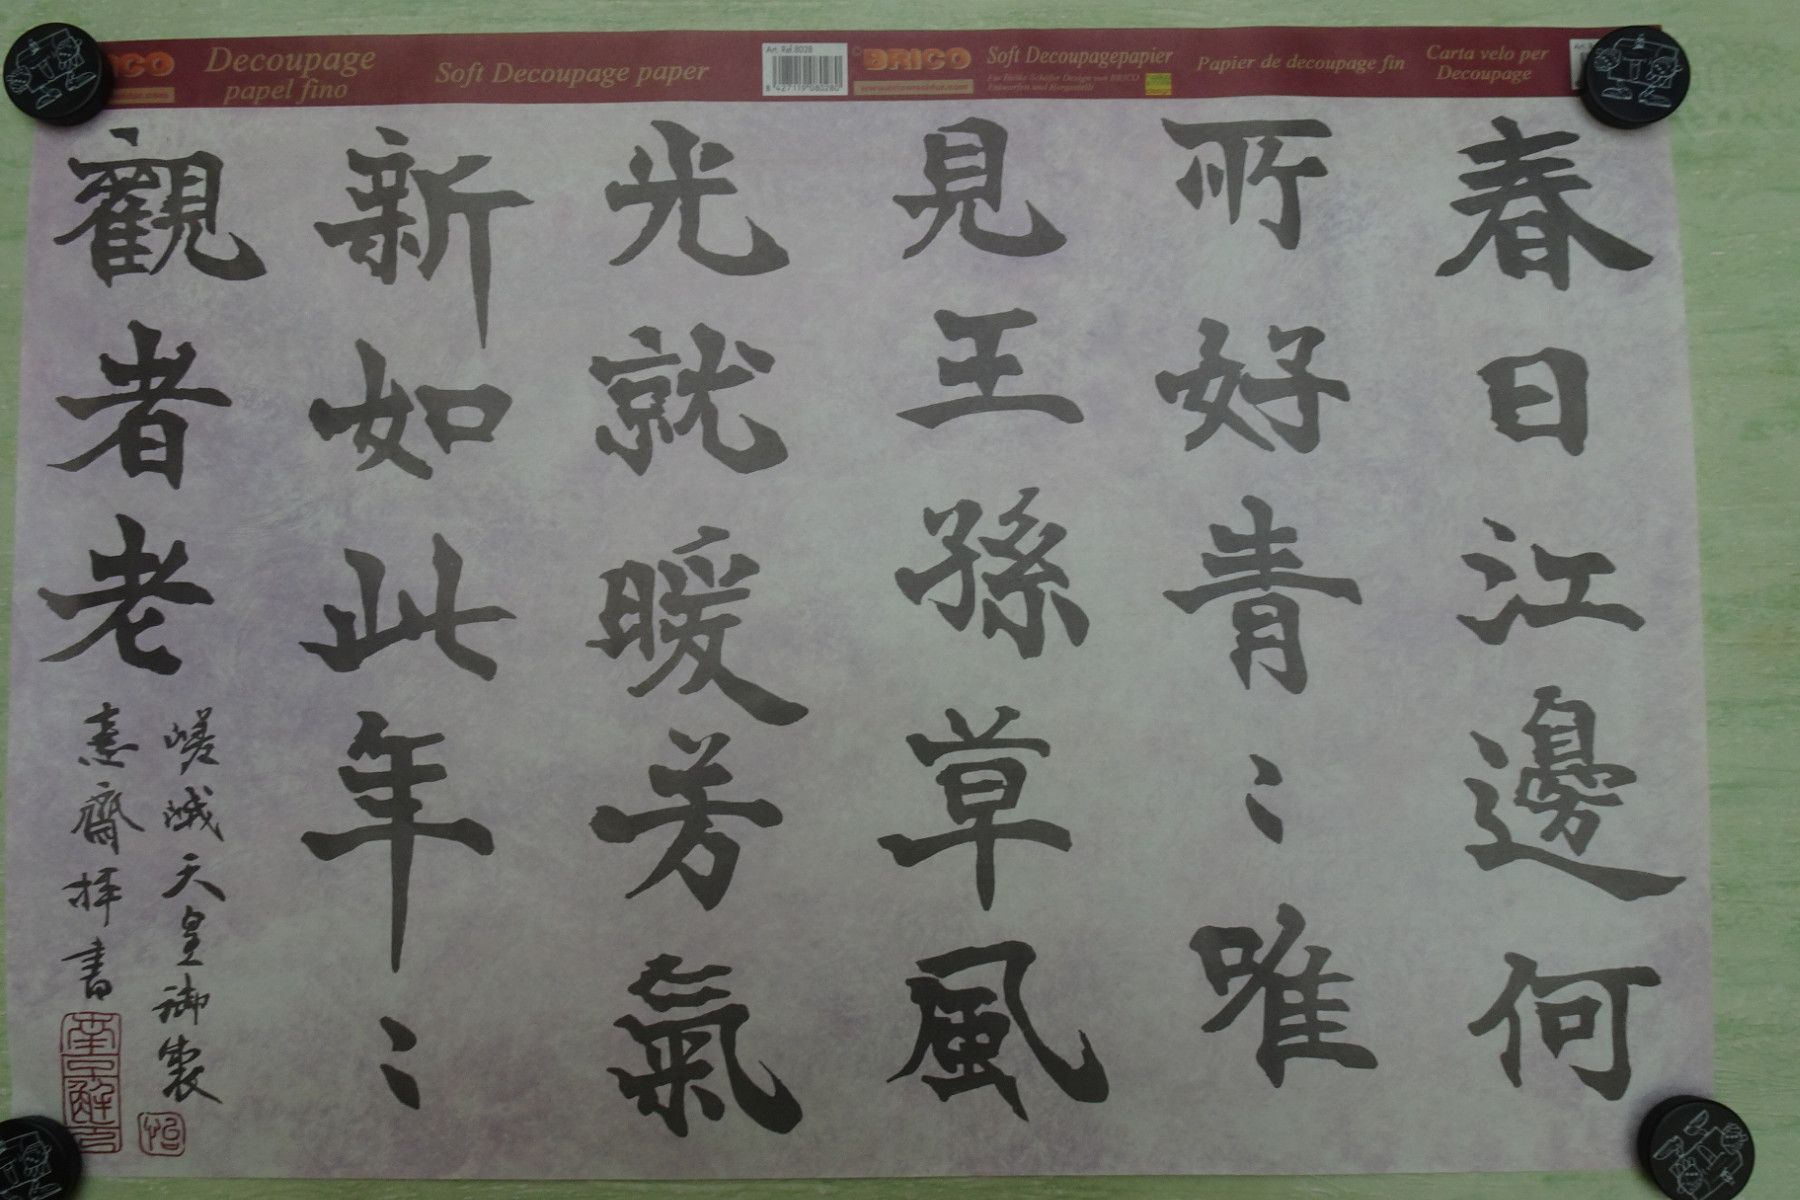 BRICO
Decoupage
papel fino
Soft Decoupage paper
Art. Ref. 8028
8 427119 080280
BRICO
Soft Decoupagepapier
Für Heike Schäfer Design von BRICO
Entworfen und Hergestellt
Papier de decoupage fin
Carta velo per
Decoupage
春日江邊何
所好青〻唯
見王孫草風
光就暖芳氣
新如此年〻
觀者老
嵯峨天皇御製
齋拝書